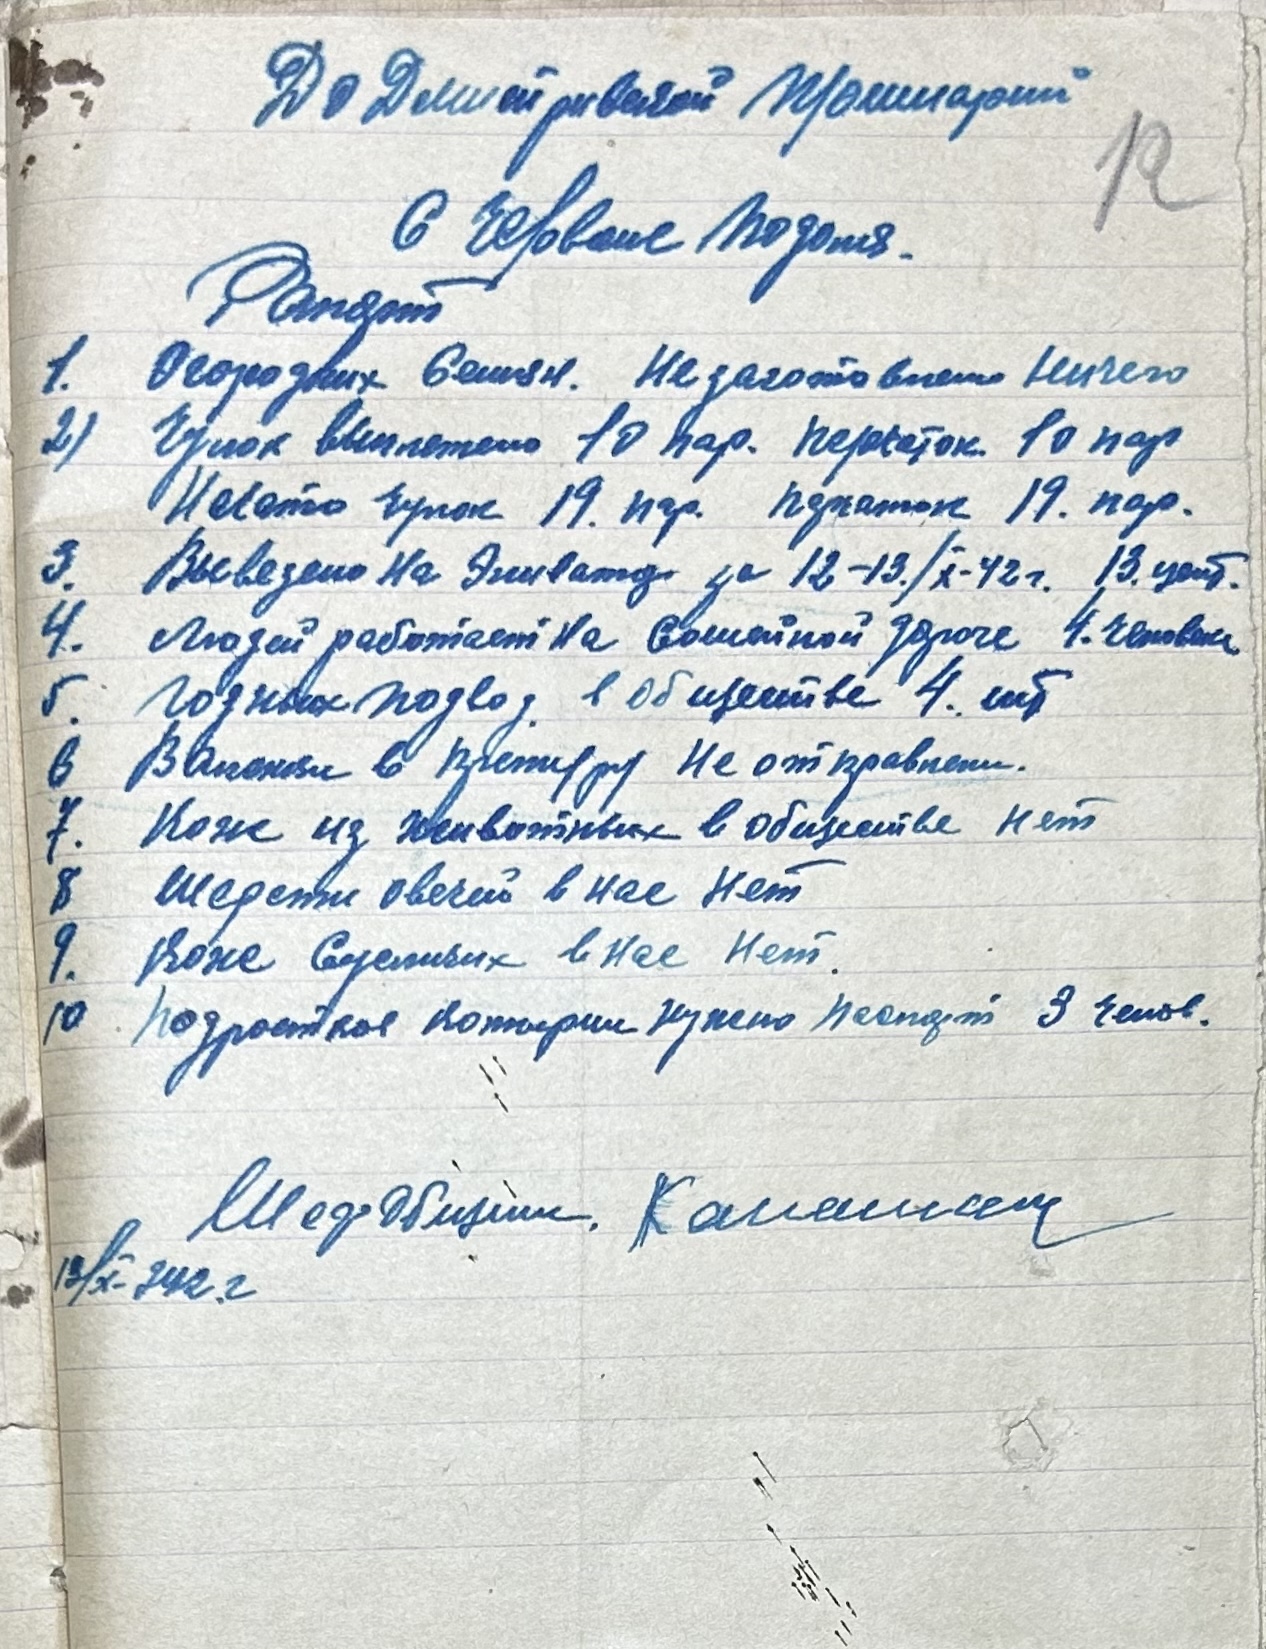 До Дмитриевской Примарии
12
С Червоне Подоля.
Рапорт
1. Огородних Семян. Не заготовлено Ничего
2) Чулок выплетено 10 пар. перчаток 10 пар
Начато чулок 19. пар. перчаток 19. пар.
3. Вывезено На Эливатор за 12-13./X-42 г. 13. цент.
4. Людей работает На Сошейной дороге 4. человека
5. Годных подвод. в обществе 4. шт
6 В отправлени.
7. Кож из животных в обществе нет
8 Шерсти овечий в нас Нет
9. Кож Сусличих в Нас Нет.
10 Подростков которим нужно паспорт 3 челов.
Шеф общины.
13/X-942. г